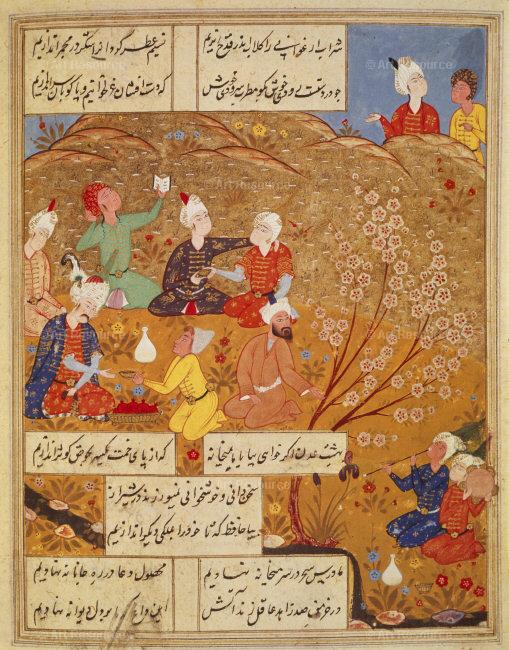 شراب ارغوانی را گلاب اندر قدح ریزیم
نسیم عطر گردان را شکر در مجمر اندازیم
چو در دست است رودی خوش بگو مطرب سرودی خوش
که دست افشان غزل خوانیم و پاکوبان سر اندازیم
بهشت عدن اگر خواهی بیا با ما بمیخانه
که از پای خمت یکسر بحوض کوثر اندازیم
سخن دانی و خوشخوانی نمیورزند در شیراز
بیا حافظ که تا خود را بملکی دیگر اندازیم
ما درس سحر در ره میخانه نهادیم
محصول دعا در ره جانانه نهادیم
در خرمن صد زاهد عاقل زند آتش
این داغ که ما بر دل دیوانه نهادیم
© Art Resource